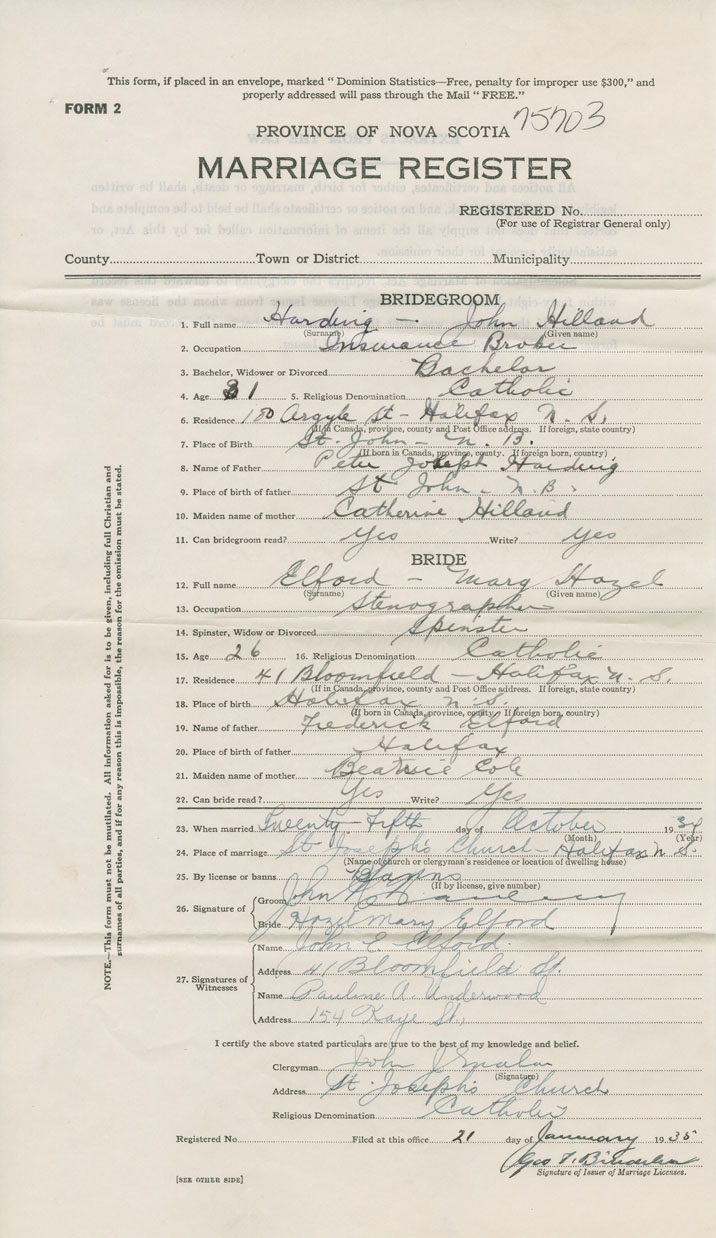 This form, if placed in an envelope, marked " Dominion Statistics—Free, penalty for improper use $300," and
properly addressed will pass through the Mail " FREE."
FORM 2
75703
PROVINCE OF NOVA SCOTIA
MARRIAGE REGISTER
REGISTERED No.
(For use of Registrar General only)
County Town or District Municipality
BRIDEGROOM
1. Full name Harding - John Hilland
(Surname) (Given name)
2. Occupation Insurance Broker
3. Bachelor, Widower or Divorced Bachelor
4. Age 31 5. Religious Denomination Catholic
6. Residence 180 Argyle St - Halifax N. S.
(If in Canada, province, county and Post Office address. If foreign, state country)
7. Place of Birth St. John - N. B.
(If born in Canada, province, county. If foreign born, country)
8. Name of Father Peter Joseph Harding
9. Place of birth of father St John - N. B.
10. Maiden name of mother Catherine Hilland
11. Can bridegroom read? Yes Write? Yes
BRIDE
12. Full name Elford - Mary Hazel
(Surname) (Given name)
13. Occupation Stenographer
14. Spinster, Widow or Divorced Spinster
15. Age 26 16. Religious Denomination Catholic
17. Residence 41 Bloomfield - Halifax N. S.
(If in Canada, province, county and Post Office address. If foreign, state country)
18. Place of birth Halifax N. S.
(If born in Canada, province, county. If foreign born, country)
19. Name of father Frederick Elford
20. Place of birth of father Halifax
21. Maiden name of mother Beatrice Cole
22. Can bride read? Yes Write? Yes
23. When married Twenty-Fifth day of October 1934
(Month) (Year)
24. Place of marriage St Joseph's Church - Halifax N. S.
(Name of church or clergyman's residence or location of dwelling house)
25. By license or banns Banns
(If by license, give number)
26. Signature of
Groom John H
Bride Hazel Mary Elford
27. Signatures of Witnesses
Name John E. Elford
Address 41 Bloomfield St.
Name Pauline A. Underwood
Address 154 Kaye St.
I certify the above stated particulars are true to the best of my knowledge and belief.
Clergyman John
(Signature)
Address St. Joseph's Church
Religious Denomination Catholic
Registered No. Filed at this office 21 day of January 1935
Geo
Signature of Issuer of Marriage Licenses.
[SEE OTHER SIDE]
NOTE.—This form must not be mutilated. All information asked for is to be given, including full Christian and
surnames of all parties, and if for any reason this is impossible, the reason for the omission must be stated.